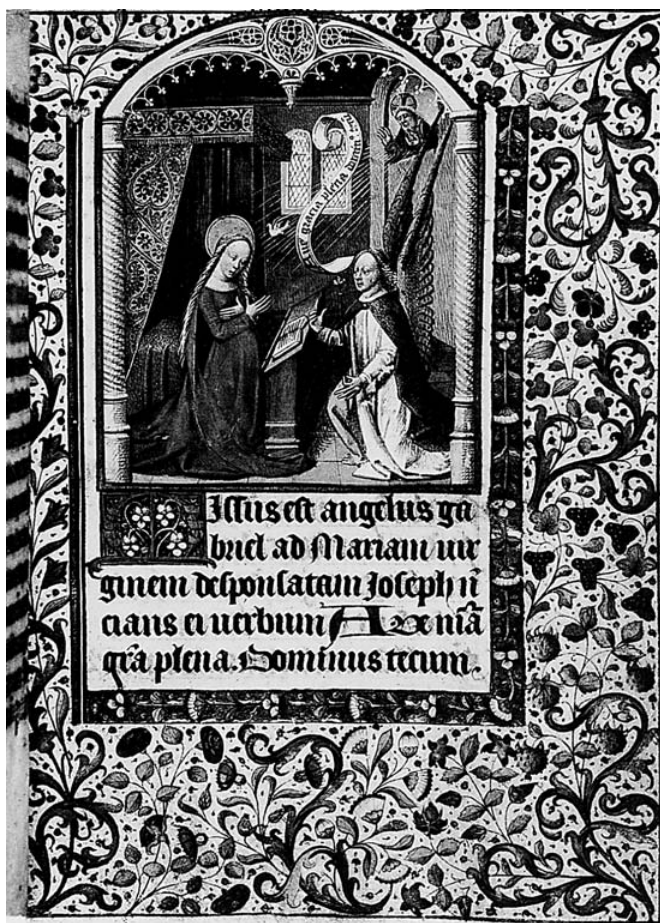 Aue gracia plena
MIssus est angelus ga
briel ad Mariam uir
ginem desponsatam Joseph nū
cians ei uerbum Aue mīa
gr̄a plena. Dominus tecum.